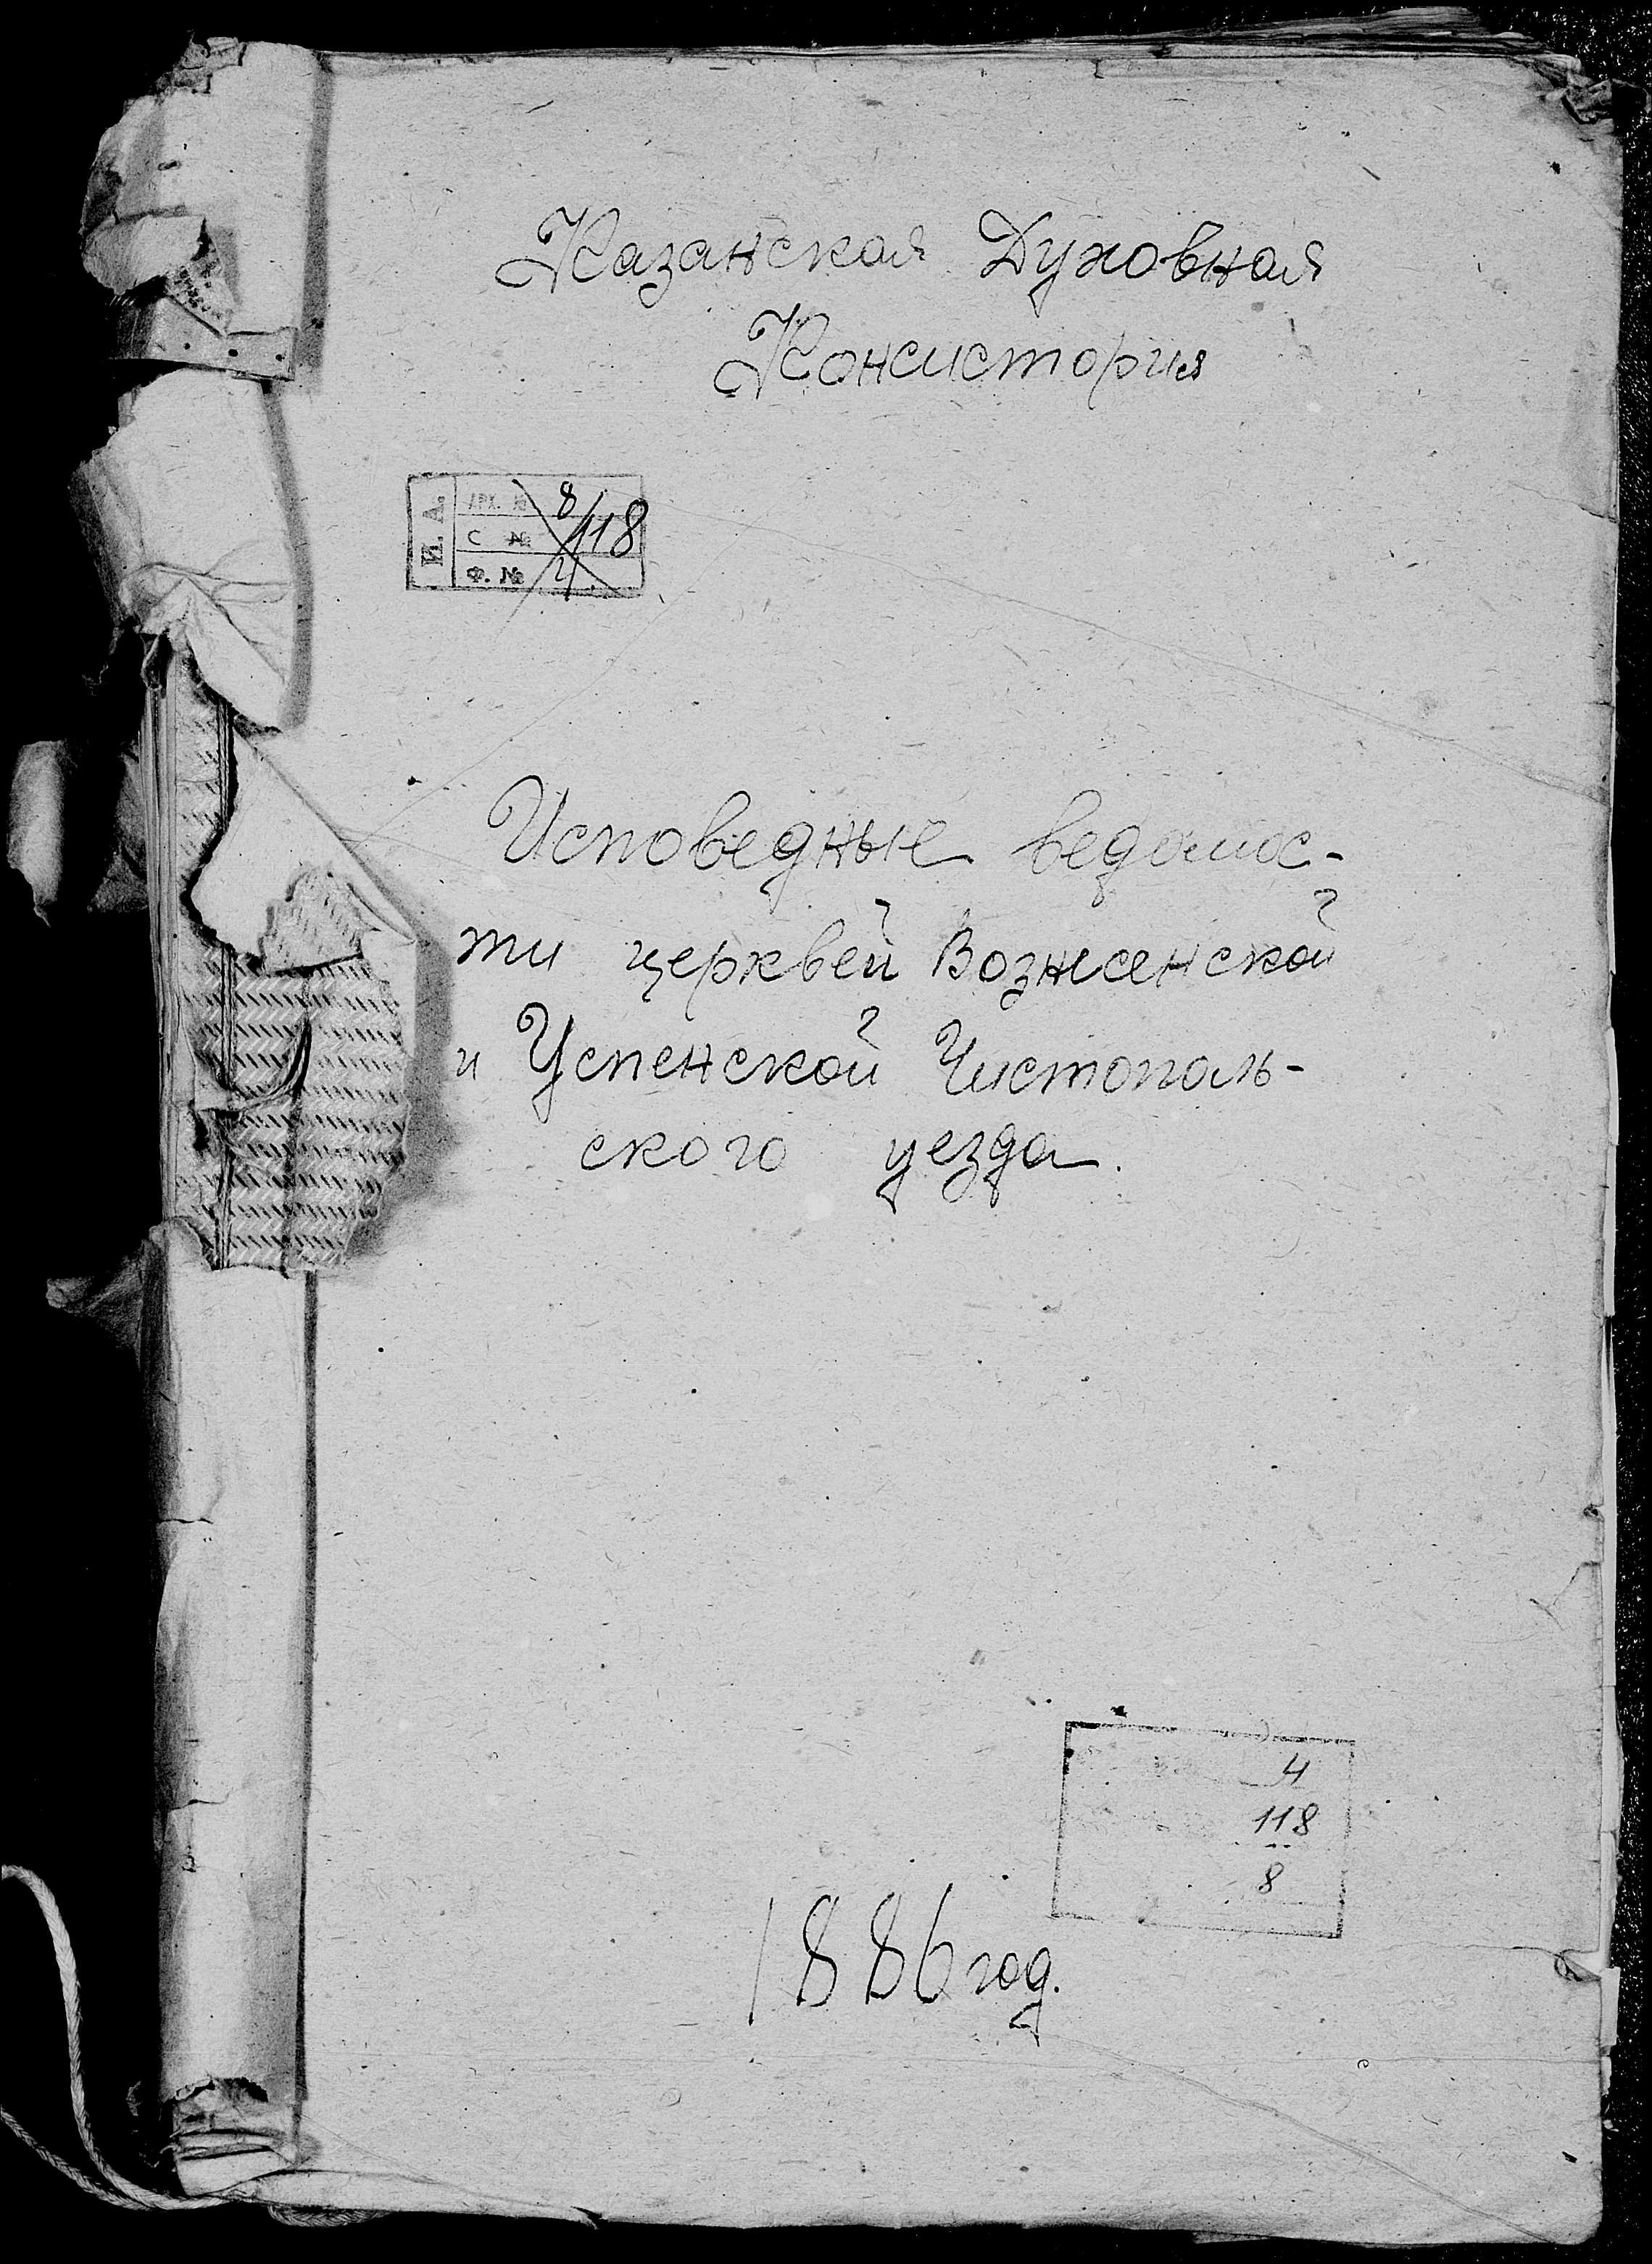 Казанская Духовная
Консистория
И. А.
АРХ. №
8/118
С №
Ф. № 4
Исповедные ведомос-
ти церквей Вознсенской
и Успенской Чистополь-
ского уезда.
4
118
8
1886 год.